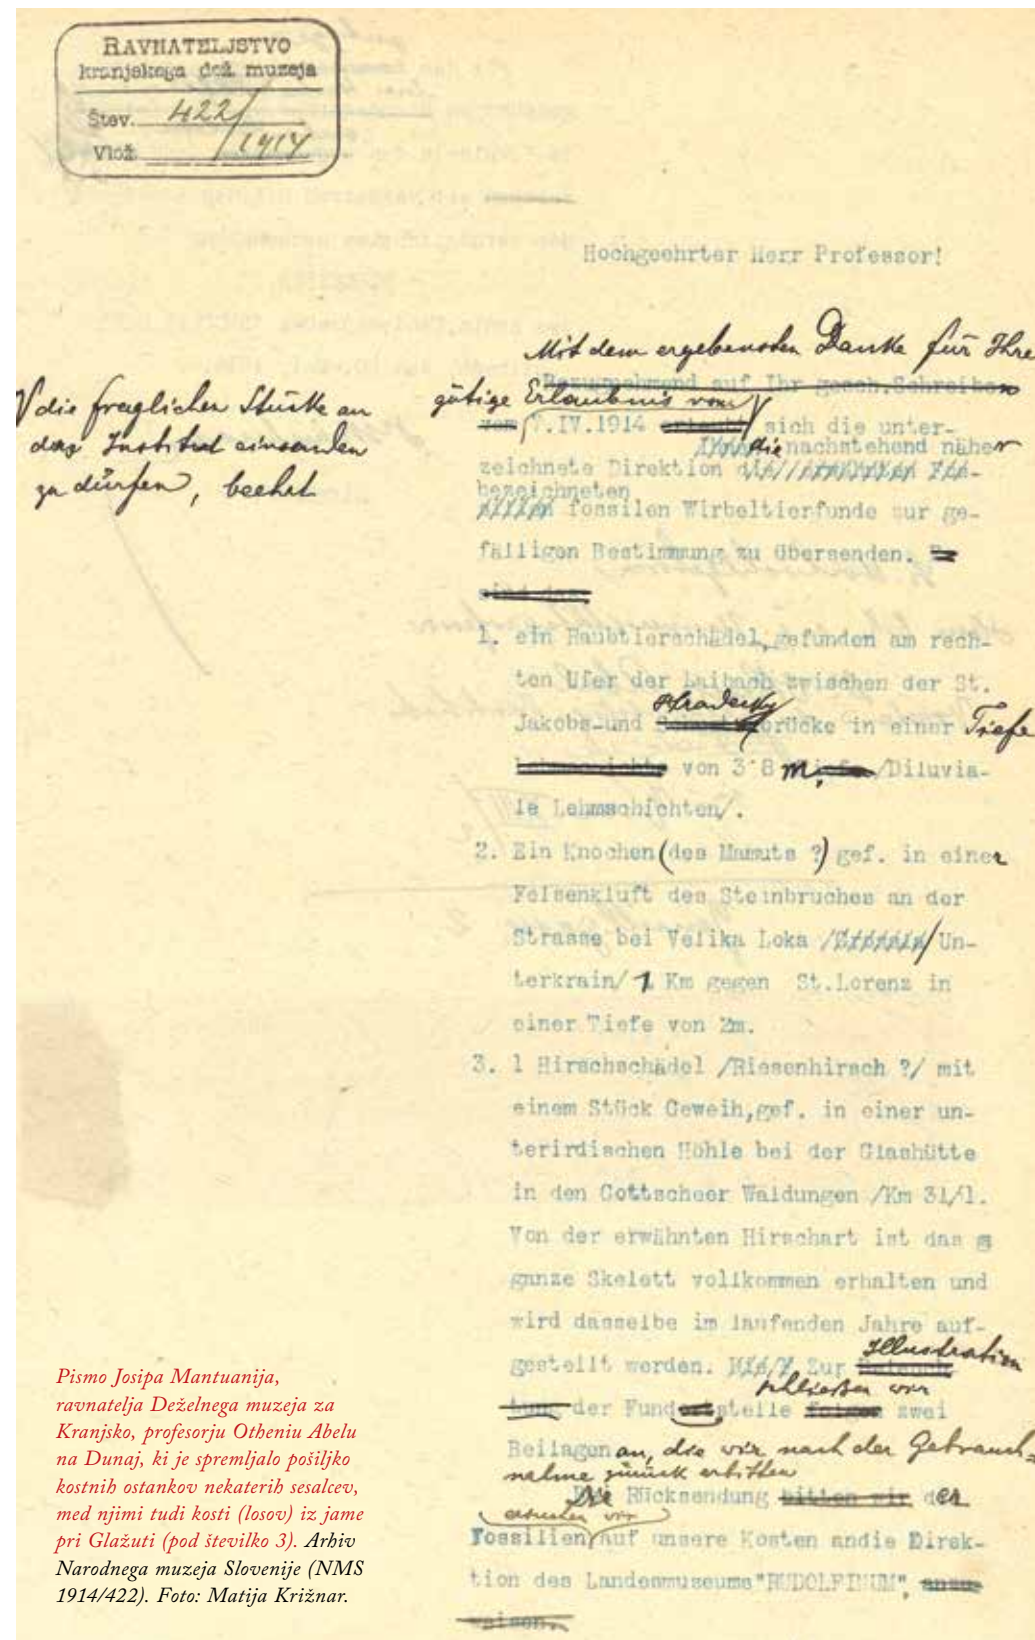 RAVNATELJSTVO
kranjskega dež. muzeja
Štev. 422/
Vlož. /1914
Hochgeehrter Herr Professor!
Mit dem ergebensten Danke für Ihre
Bezugnehmend auf Ihr gesch. Schreiben
gütige Erlaubnis vom
vom 7.IV.1914 erlaubt sich die unter-
die nachstehend näher
zeichnete Direktion die
bezeichneten
fossilen Wirbeltierfunde zur ge-
fälligen Bestimmung zu übersenden. Es
sind das:
die fraglichen Stücke an
das Institut einsenden
zu dürfen, beehrt
1. ein Raubtierschädel, gefunden am rech-
ten Ufer der Laibach zwischen der St.
Hradecky
Jakobs-und brücke in einer Tiefe
von 3·8 m, /Diluvia-
le Lehmschichten/.
2. Ein Knochen (des Mamuts ?) gef. in einer
Felsenkluft des Steinbruches an der
Strasse bei Velika Loka / Un-
terkrain/ 1 Km gegen St.Lorenz in
einer Tiefe von 2m.
3. 1 Hirschschädel /Riesenhirsch ?/ mit
einem Stück Geweih,gef. in einer un-
terirdischen Höhle bei der Glashütte
in den Gottscheer Waldungen /Km 31/1.
Von der erwähnten Hirschart ist das
ganze Skelett vollkommen erhalten und
wird dasselbe im laufenden Jahre auf-
Illustration
gestellt werden. Zur
schließen wir
der Fund stelle folgen zwei
Beilagen an, die wir nach der Gebrauch-
nahme zurück erbitten
Die Rücksendung bitten wir der
ersuchen wir
Fossilien auf unsere Kosten andie Direk-
tion des Landesmuseums "RUDOLFINUM",
Pismo Josipa Mantuanija,
ravnatelja Deželnega muzeja za
Kranjsko, profesorju Otheniu Abelu
na Dunaj, ki je spremljalo pošiljko
kostnih ostankov nekaterih sesalcev,
med njimi tudi kosti (losov) iz jame
pri Glažuti (pod številko 3). Arhiv
Narodnega muzeja Slovenije (NMS
1914/422). Foto: Matija Križnar.